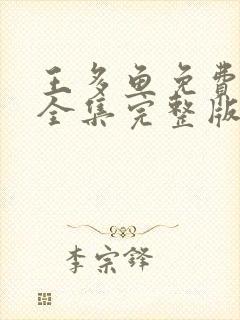 王多鱼免费
全集完整版
李宗铎